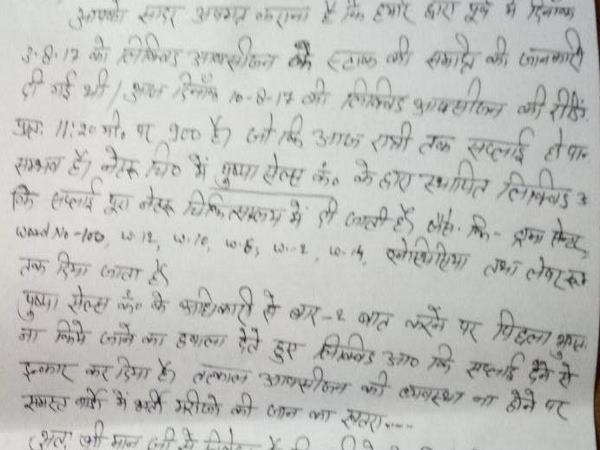 आपको सादर अवगत कराना है कि हमारे द्वारा पूर्व में दिनांक
3-8-17 को लिक्विड आक्सीजन के स्टाक की समाप्ति की जानकारी
दी गई थी / आज दिनाँक 10-8-17 को लिक्विड आक्सीजन की रीडिंग
प्रातः 11:20 पर 900 है। जो कि आज रात्री तक सप्लाई हो पाना
सम्भव है। नेहरू चि० में पुष्पा सेल्स कं० के द्वारा स्थापित लिक्विड
कि सप्लाई पूरा नेहरू चिकित्सालय में दी जाती है। जैसे कि - ट्रामा सेन्टर,
Ward No-100, w-12, w-10, w-6, w-2, w-14, एनेस्थिसिया तथा लेबर रूम
तक दिया जाता है।
पुष्पा सेल्स कं० के अधिकारी से बार-2 बात करने पर पिछला
ना किये जाने का हवाला देते हुए लिक्विड आ० कि सप्लाई देने से
इन्कार कर दिया है। तत्काल आक्सीजन की व्यवस्था ना होने पर
समस्त वार्डो में भर्ती मरीजो की जान का खतरा....